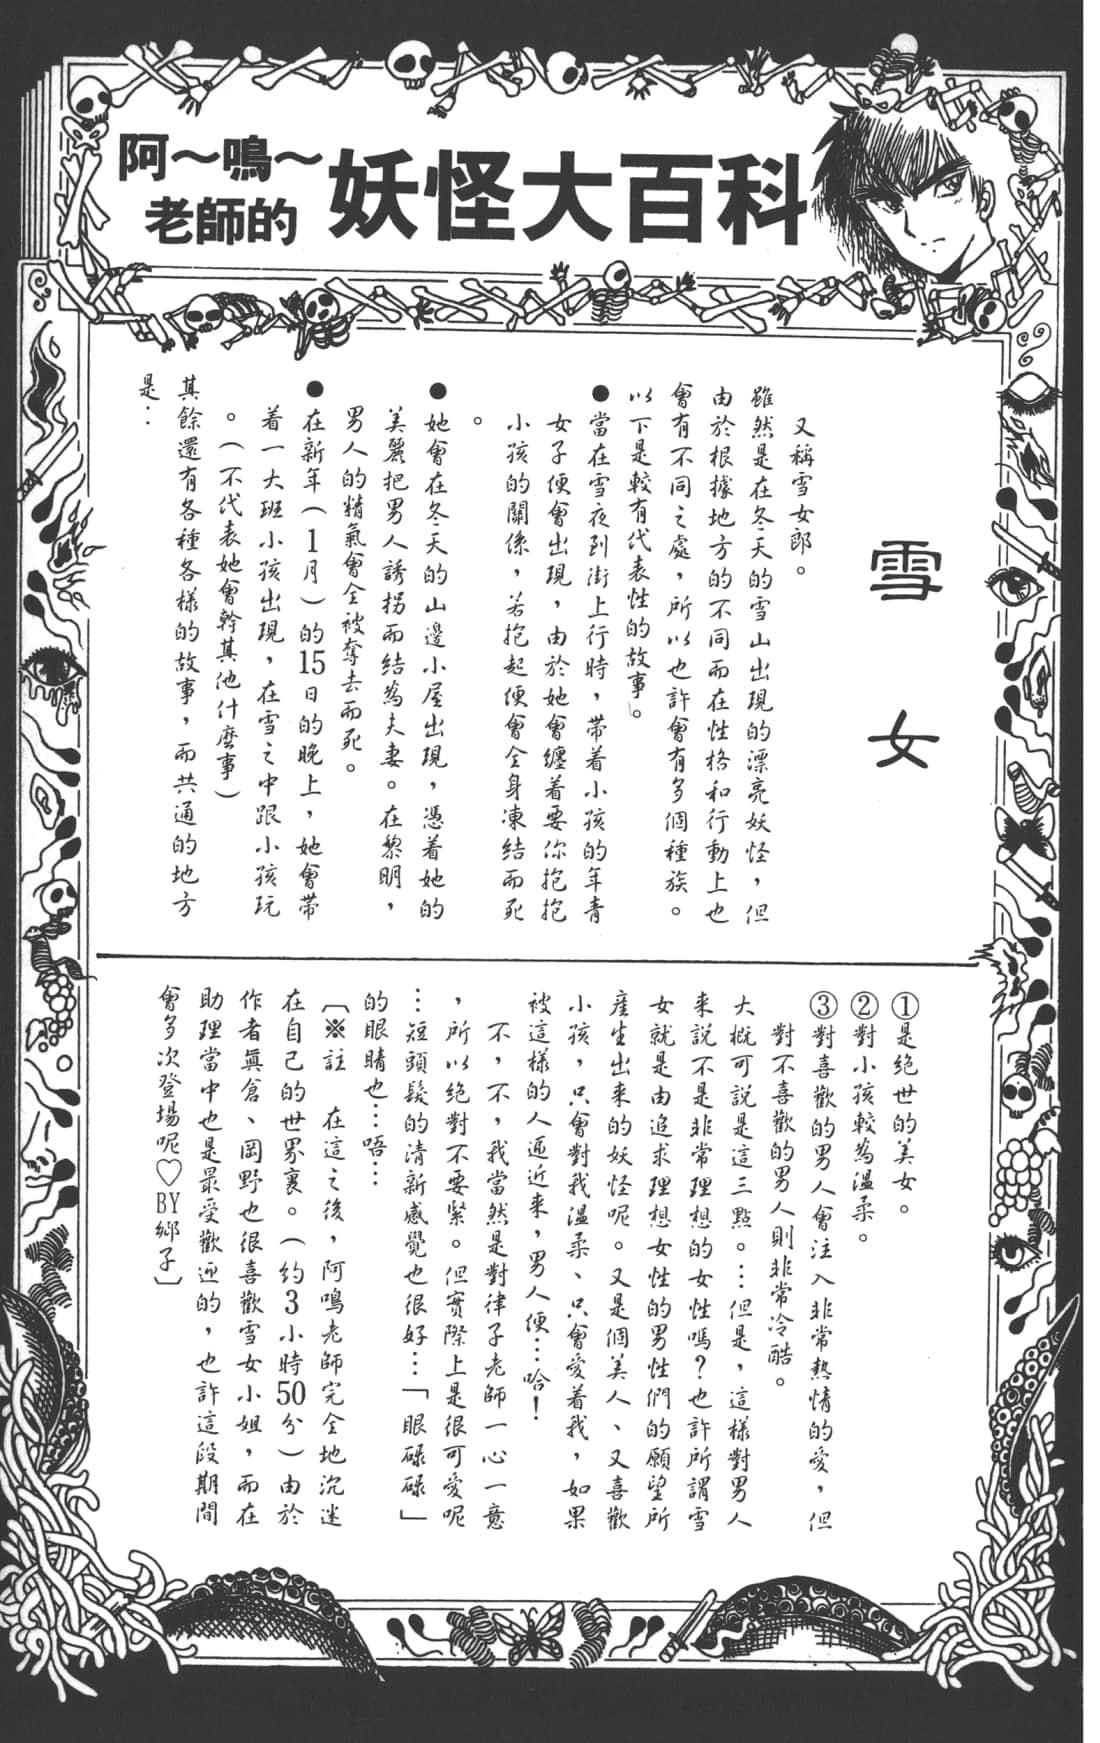 阿～鳴～
老師的
妖怪大百科
雪女
又稱雪女郎。
雖然是在冬天的雪山出現的漂亮妖怪，但
由於根據地方的不同而在性格和行動上也
會有不同之處，所以也許會有多個種族。
以下是較有代表性的故事。
●當在雪夜到街上行時，帶着小孩的年青
女子便會出現，由於她會纏着要你抱抱
小孩的關係，若抱起便會全身凍結而死
。
●她會在冬天的山邊小屋出現，憑着她的
美麗把男人誘拐而結為夫妻。在黎明，
男人的精氣會全被奪去而死。
●在新年（1月）的15日的晚上，她會帶
着一大班小孩出現，在雪之中跟小孩玩
。（不代表她會幹其他什麼事）
其餘還有各種各樣的故事，而共通的地方
是：
①是绝世的美女。
②對小孩較為溫柔。
③對喜歡的男人會注入非常熱情的愛，但
對不喜歡的男人則非常冷酷。
大概可說是這三點。…但是，這樣對男人
来說不是非常理想的女性嗎？也許所謂雪
女就是由追求理想女性的男性們的願望所
産生出来的妖怪呢。又是個美人、又喜歡
小孩，只會對我溫柔、只會愛着我，如果
被這樣的人逼近来，男人便…哈！
不，不，我當然是對律子老師一心一意
，所以绝對不要紧。但實際上是很可愛呢
…短頭髮的清新感覺也很好…「眼碌碌」
的眼睛也…唔…
〔※註　在這之後，阿鳴老師完全地沉迷
在自己的世界裏。（約3小時50分）由於
作者真倉、岡野也很喜歡雪女小姐，而在
助理當中也是最受歡迎的，也許這段期間
會多次登場呢♡BY鄉子〕